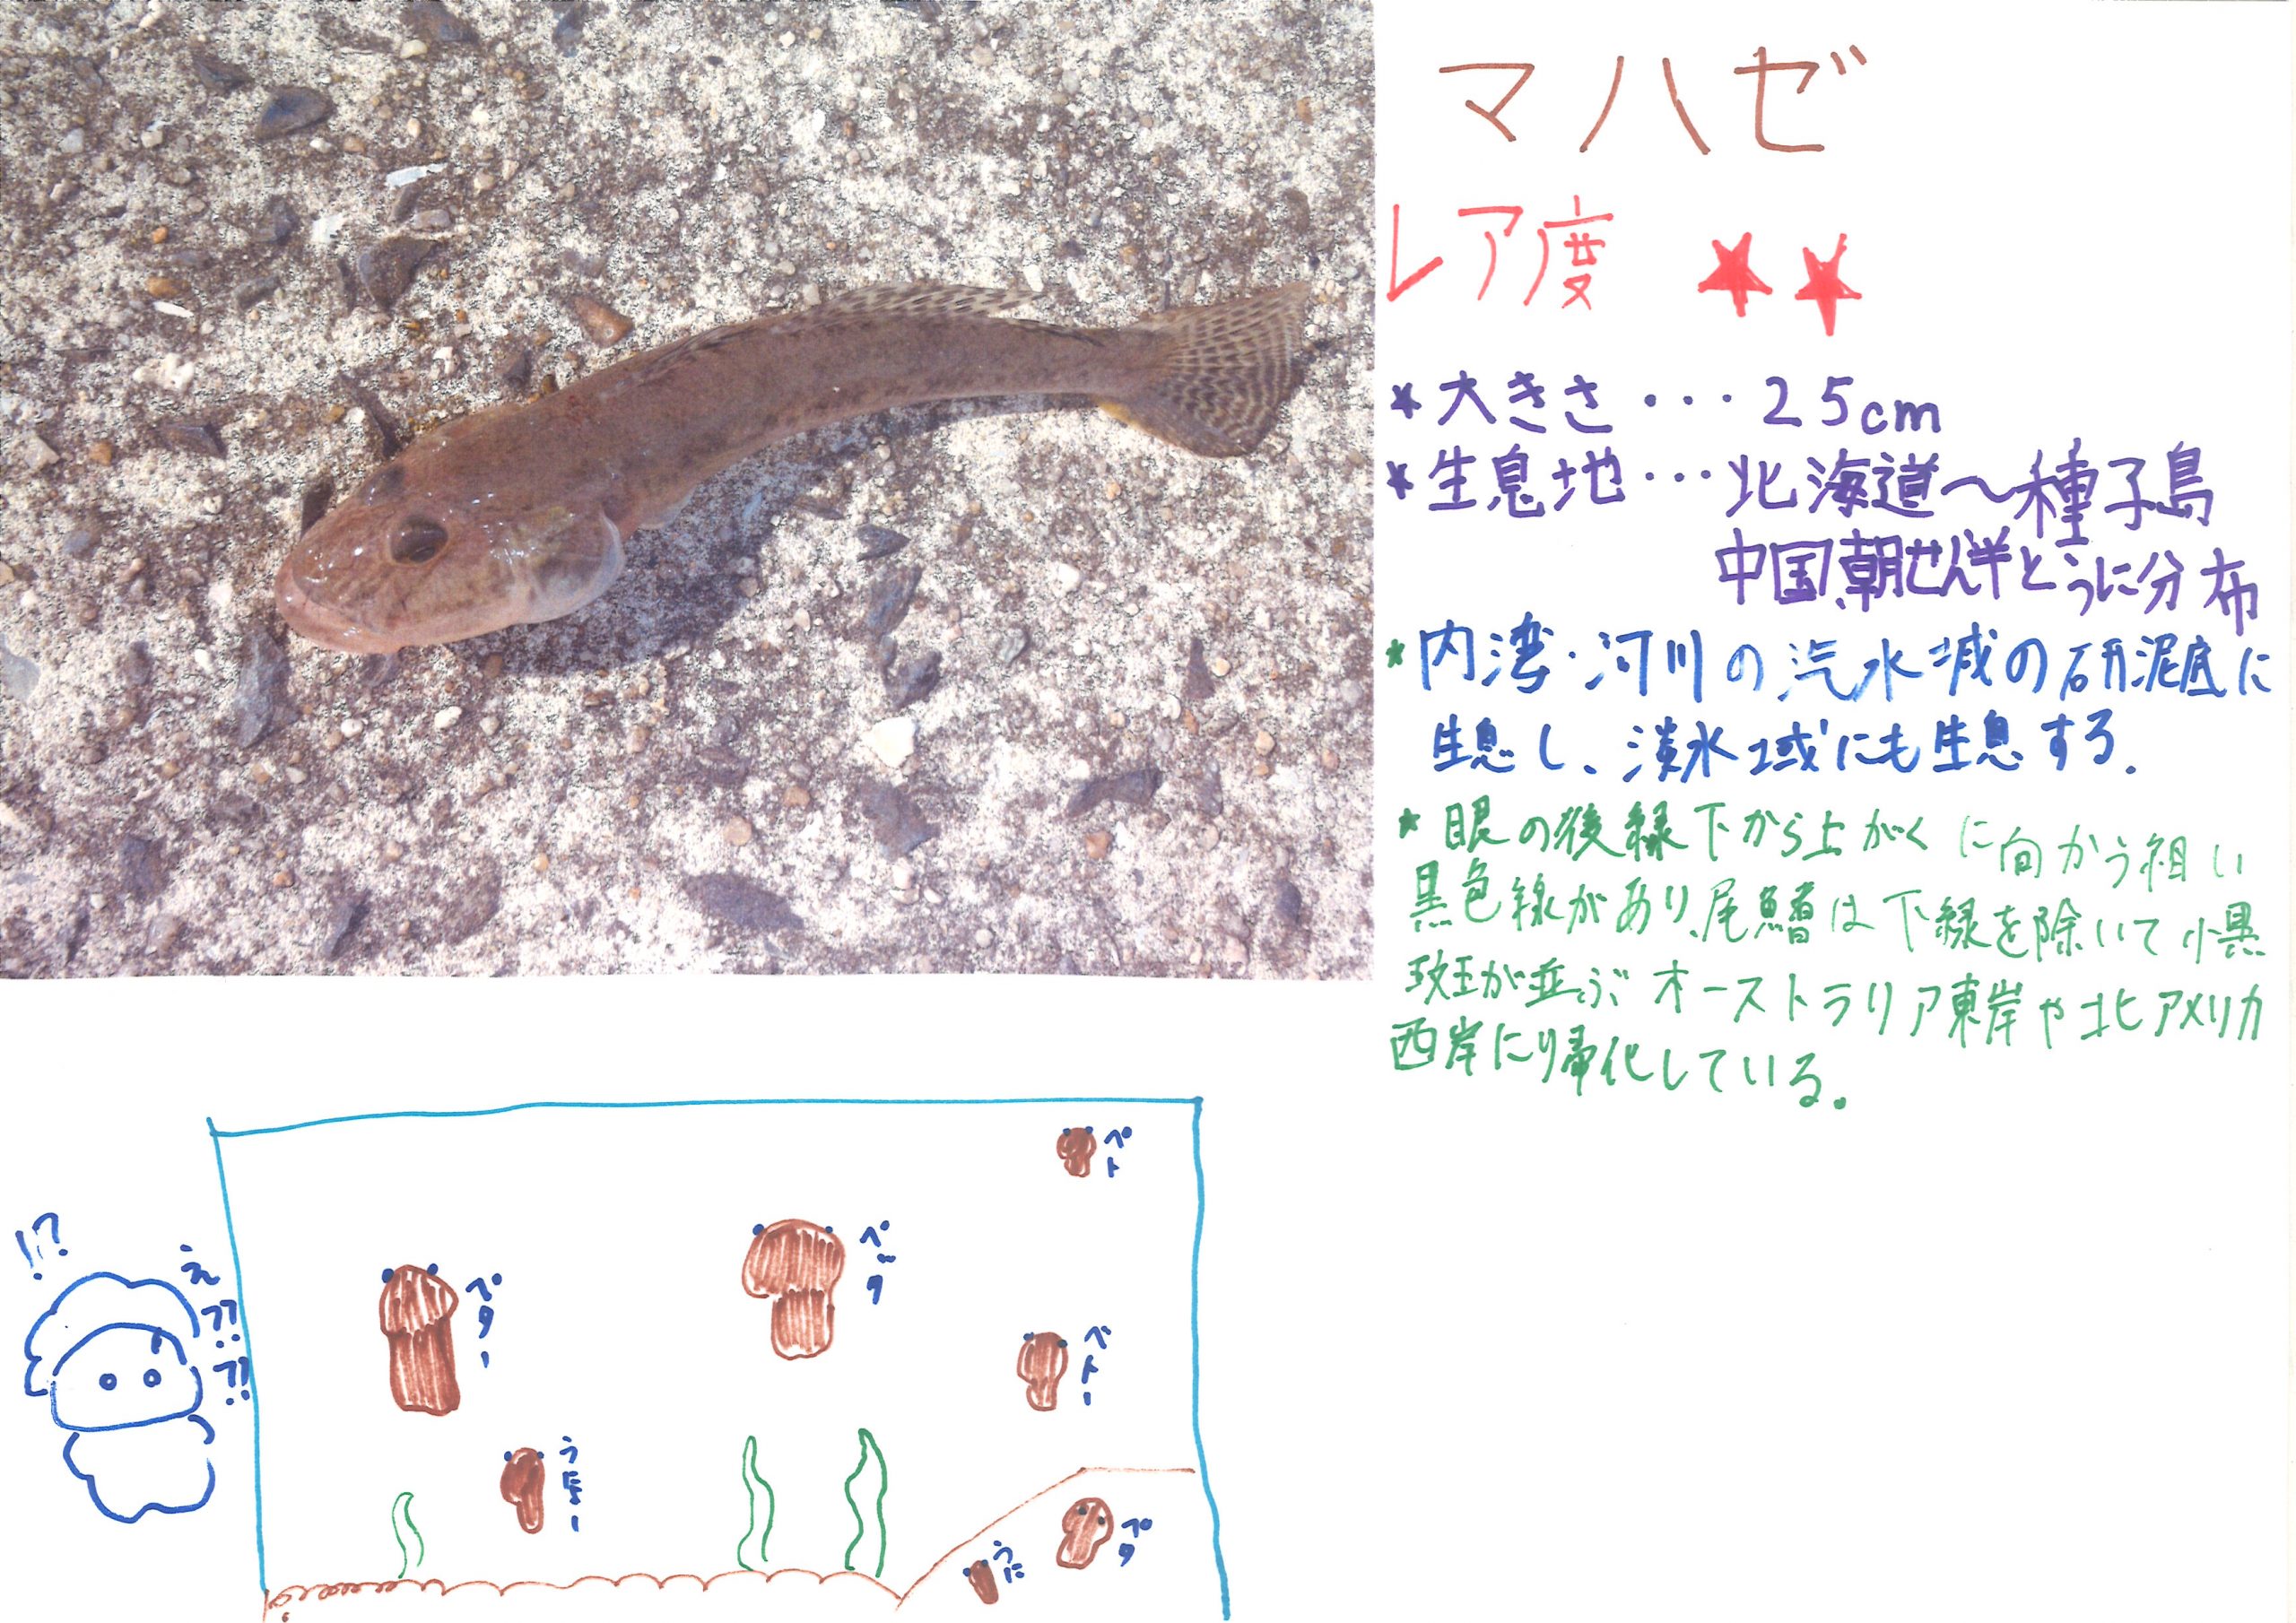 マハゼ
レア度 ★★
★大きさ・・・25cm
★生息地・・・北海道～種子島
中国、朝せん半とうに分布
★内湾・河川の汽水域の研泥底に
生息し、淡水域にも生息する.
★眼の後縁下から上がくに向かう粗い
黒色線があり、尾鰭は下縁を除いて小黒
斑が並ぶ オーストラリア東岸や北アメリカ
西岸に帰化している。
!?
え
??
ペト
ペタ
ペター
ペトー
うに
ペタ